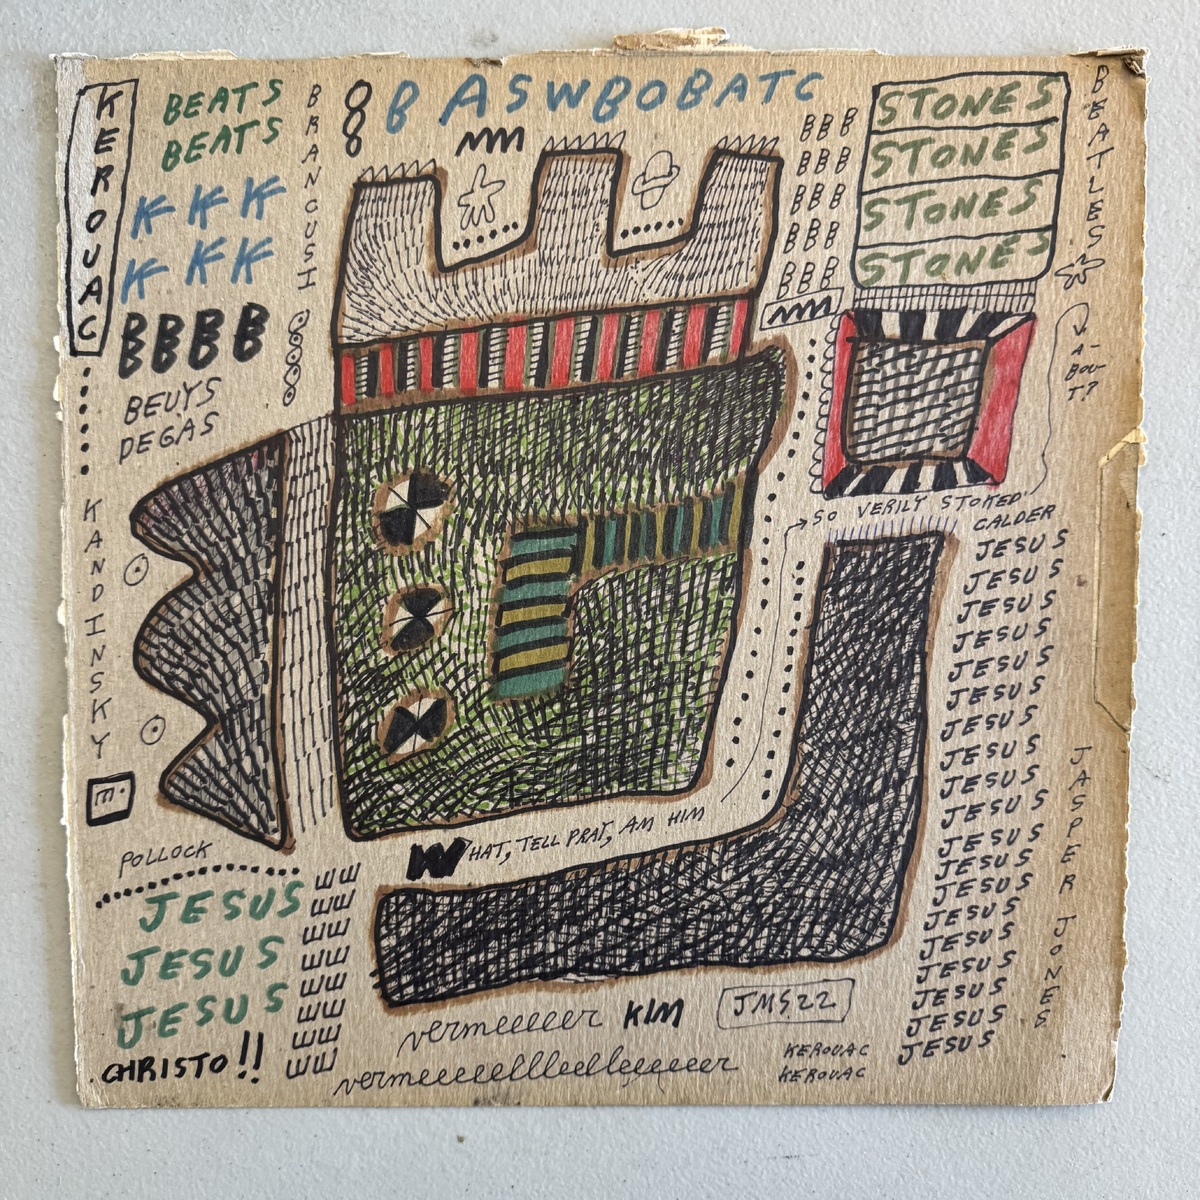 KEROUAC
BEATS
BEATS
K K K
K K K
BBBB
BEUYS
DEGAS
BRANCUSI
B ASWBOBATC
BBB
BBB
BBB
BBB
BBB
STONES
STONES
STONES
STONES
BEATLES
A-
BOU-
T?
KANDINSKY
SO VERILY STOKED
CALDER
JESUS
JESUS
JESUS
JESUS
JESUS
JESUS
JESUS
JESUS
JESUS
JESUS
JESUS
JESUS
JESUS
JESUS
JESUS
JESUS
JESUS
JESUS
JESUS
JASPER JONES
WHAT, TELL PRAT, AM HIM
POLLOCK
JESUS
JESUS
JESUS
CHRISTO!!
EE
EE
EE
EE
EE
EE
EE
EE
vermeeeeer KIM
JMS22
vermeeeeellleelleeeeeer
KEROUAC
KEROUAC